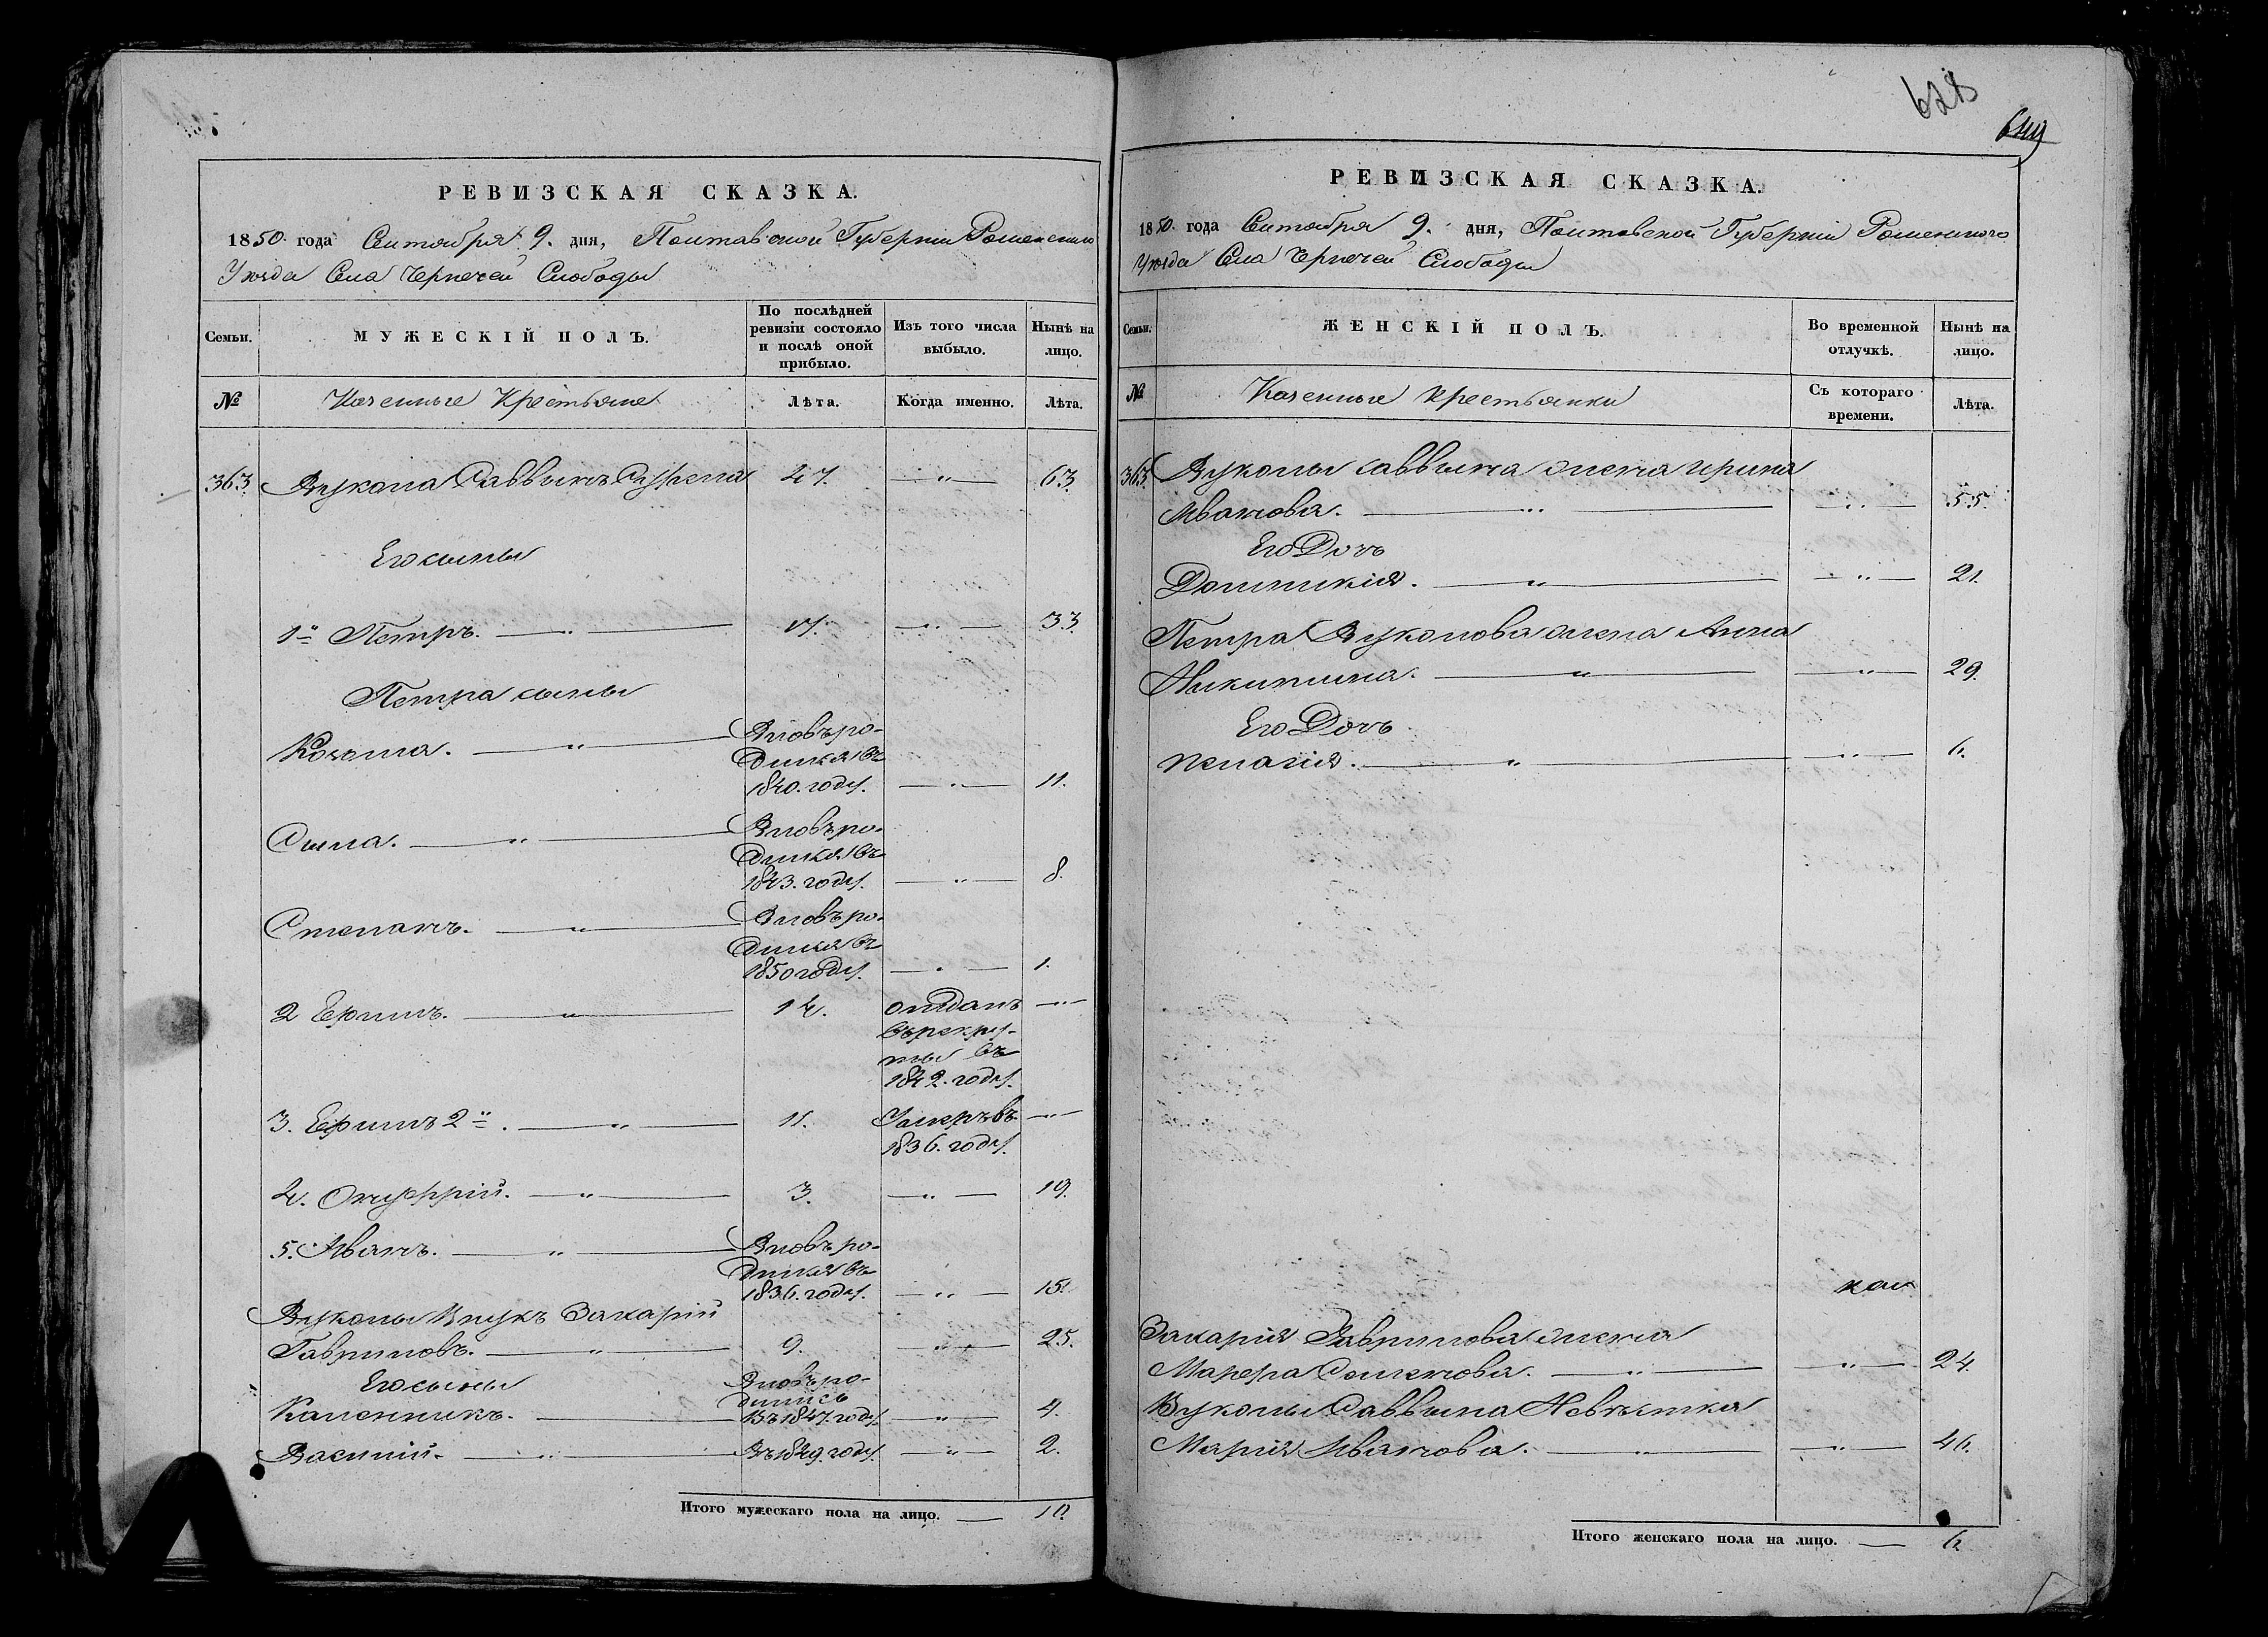 РЕВИЗСКАЯ СКАЗКА.
1850. года Сентября 9. дня, Полтавской Губерніи Роменского
Уѣзда Села Чернечей Слободы
Семьи.
МУЖЕСКІЙ ПОЛЪ.
По послѣдней
ревизіи состояло
и послѣ оной
прибыло.
Изъ того числа
выбыло.
Нынѣ на
лицо.
№
Казенные Крестьяне
Лѣта.
Когда именно.
Лѣта.
363. Вукола Саввинъ 47. — " — 63.
Его сыны
1й Петръ. — " — 17. — " — 33.
Петра сыны
Козьма. — " — Вновь ро-
дился въ
1840. году. — " — 11.
Сила. — " — Вновь ро-
дился въ
1843. году. — " — 8.
Степанъ. — " — Вновь ро-
дился въ
1850 году. — " — 1.
2 Ефимъ. — " — 14. отданъ — " —
въ рекру-
ты въ
1842. году.
3. Ефимъ 2й. — " — 11. Умеръ въ — " —
1836. году.
4. Онуфрій. — " — 3. — " — 19.
5. Иванъ. — " — Вновь ро-
дился въ
1836. году. — " — 15.
Вуколы Внукъ Захарій
Гавриловъ. — " — 9. — " — 25.
Его сыны Вновь ро-
дились
Каленникъ. — въ 1847. году. — " — 4.
Василій. — " — Въ 1849. году. — " — 2.
Итого мужескаго пола на лицо. — 10.
628
649
РЕВИЗСКАЯ СКАЗКА.
1850. года Сентября 9. дня, Полтавской Губерніи Роменского
Уѣзда Села Чернечей Слободы
Семьи.
ЖЕНСКІЙ ПОЛЪ.
Во временной
отлучкѣ.
Нынѣ на
лицо.
№
Казенные крестьянки
Съ котораго
времени.
Лѣта.
363. Вуколы Саввина жена Ирина
Иванова. — " — — " — 55.
Его Дочь
Домникія. — " — — " — 21.
Петра Вуколова жена Анна
Никитина. — " — — " — 29.
Его Дочь
Пелагія. — " — — " — 6.
Захарія Гаврилова жена
Марфа Семенова. — " — — " — 24.
Вуколы Саввина Невѣстка
Марія Иванова. — " — — " — 46.
Итого женскаго пола на лицо. — 6.